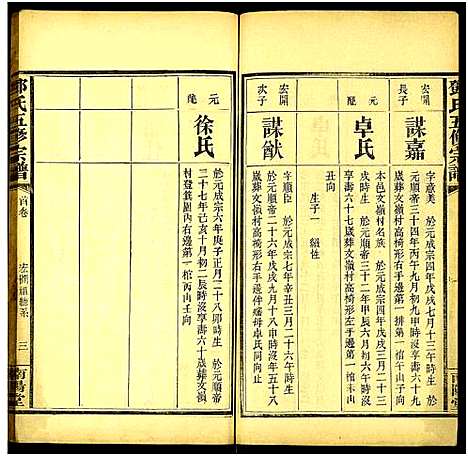 鄧氏五修宗譜
宏開
長子
謀嘉
字意美 於元成宗四年戊戌七月十三午時生
於元順帝三十四年丙午九月初九申時沒享壽六十九
歲葬文嶺村高椅形右手邊第一排第一棺丙午山子向
元
配
卓氏
本邑文嶺村名族 於元成宗四年戊戌三月二十三
戌時生 於元順帝三十二年甲辰六月初三子時沒
享壽六十七歲葬文嶺村高椅形左手邊第一棺丙山
丑向
生子一 紹性
宏開
次子
謀猷
字順臣 於元成宗七年辛丑三月二十六午時生
於元順帝二十六年戊戌三月二十六午時沒享壽五十八
歲葬文嶺村高椅形右手邊伴端母卓氏同山止
元
配
徐氏
於元成宗六年庚子正月二十八卯時生 於元順帝
二十七年己亥十月初二辰時沒享壽六十歲葬文嶺
村登箕圍內右邊第一棺丙山壬向
鄧氏五修宗譜
首卷
三
南陽堂